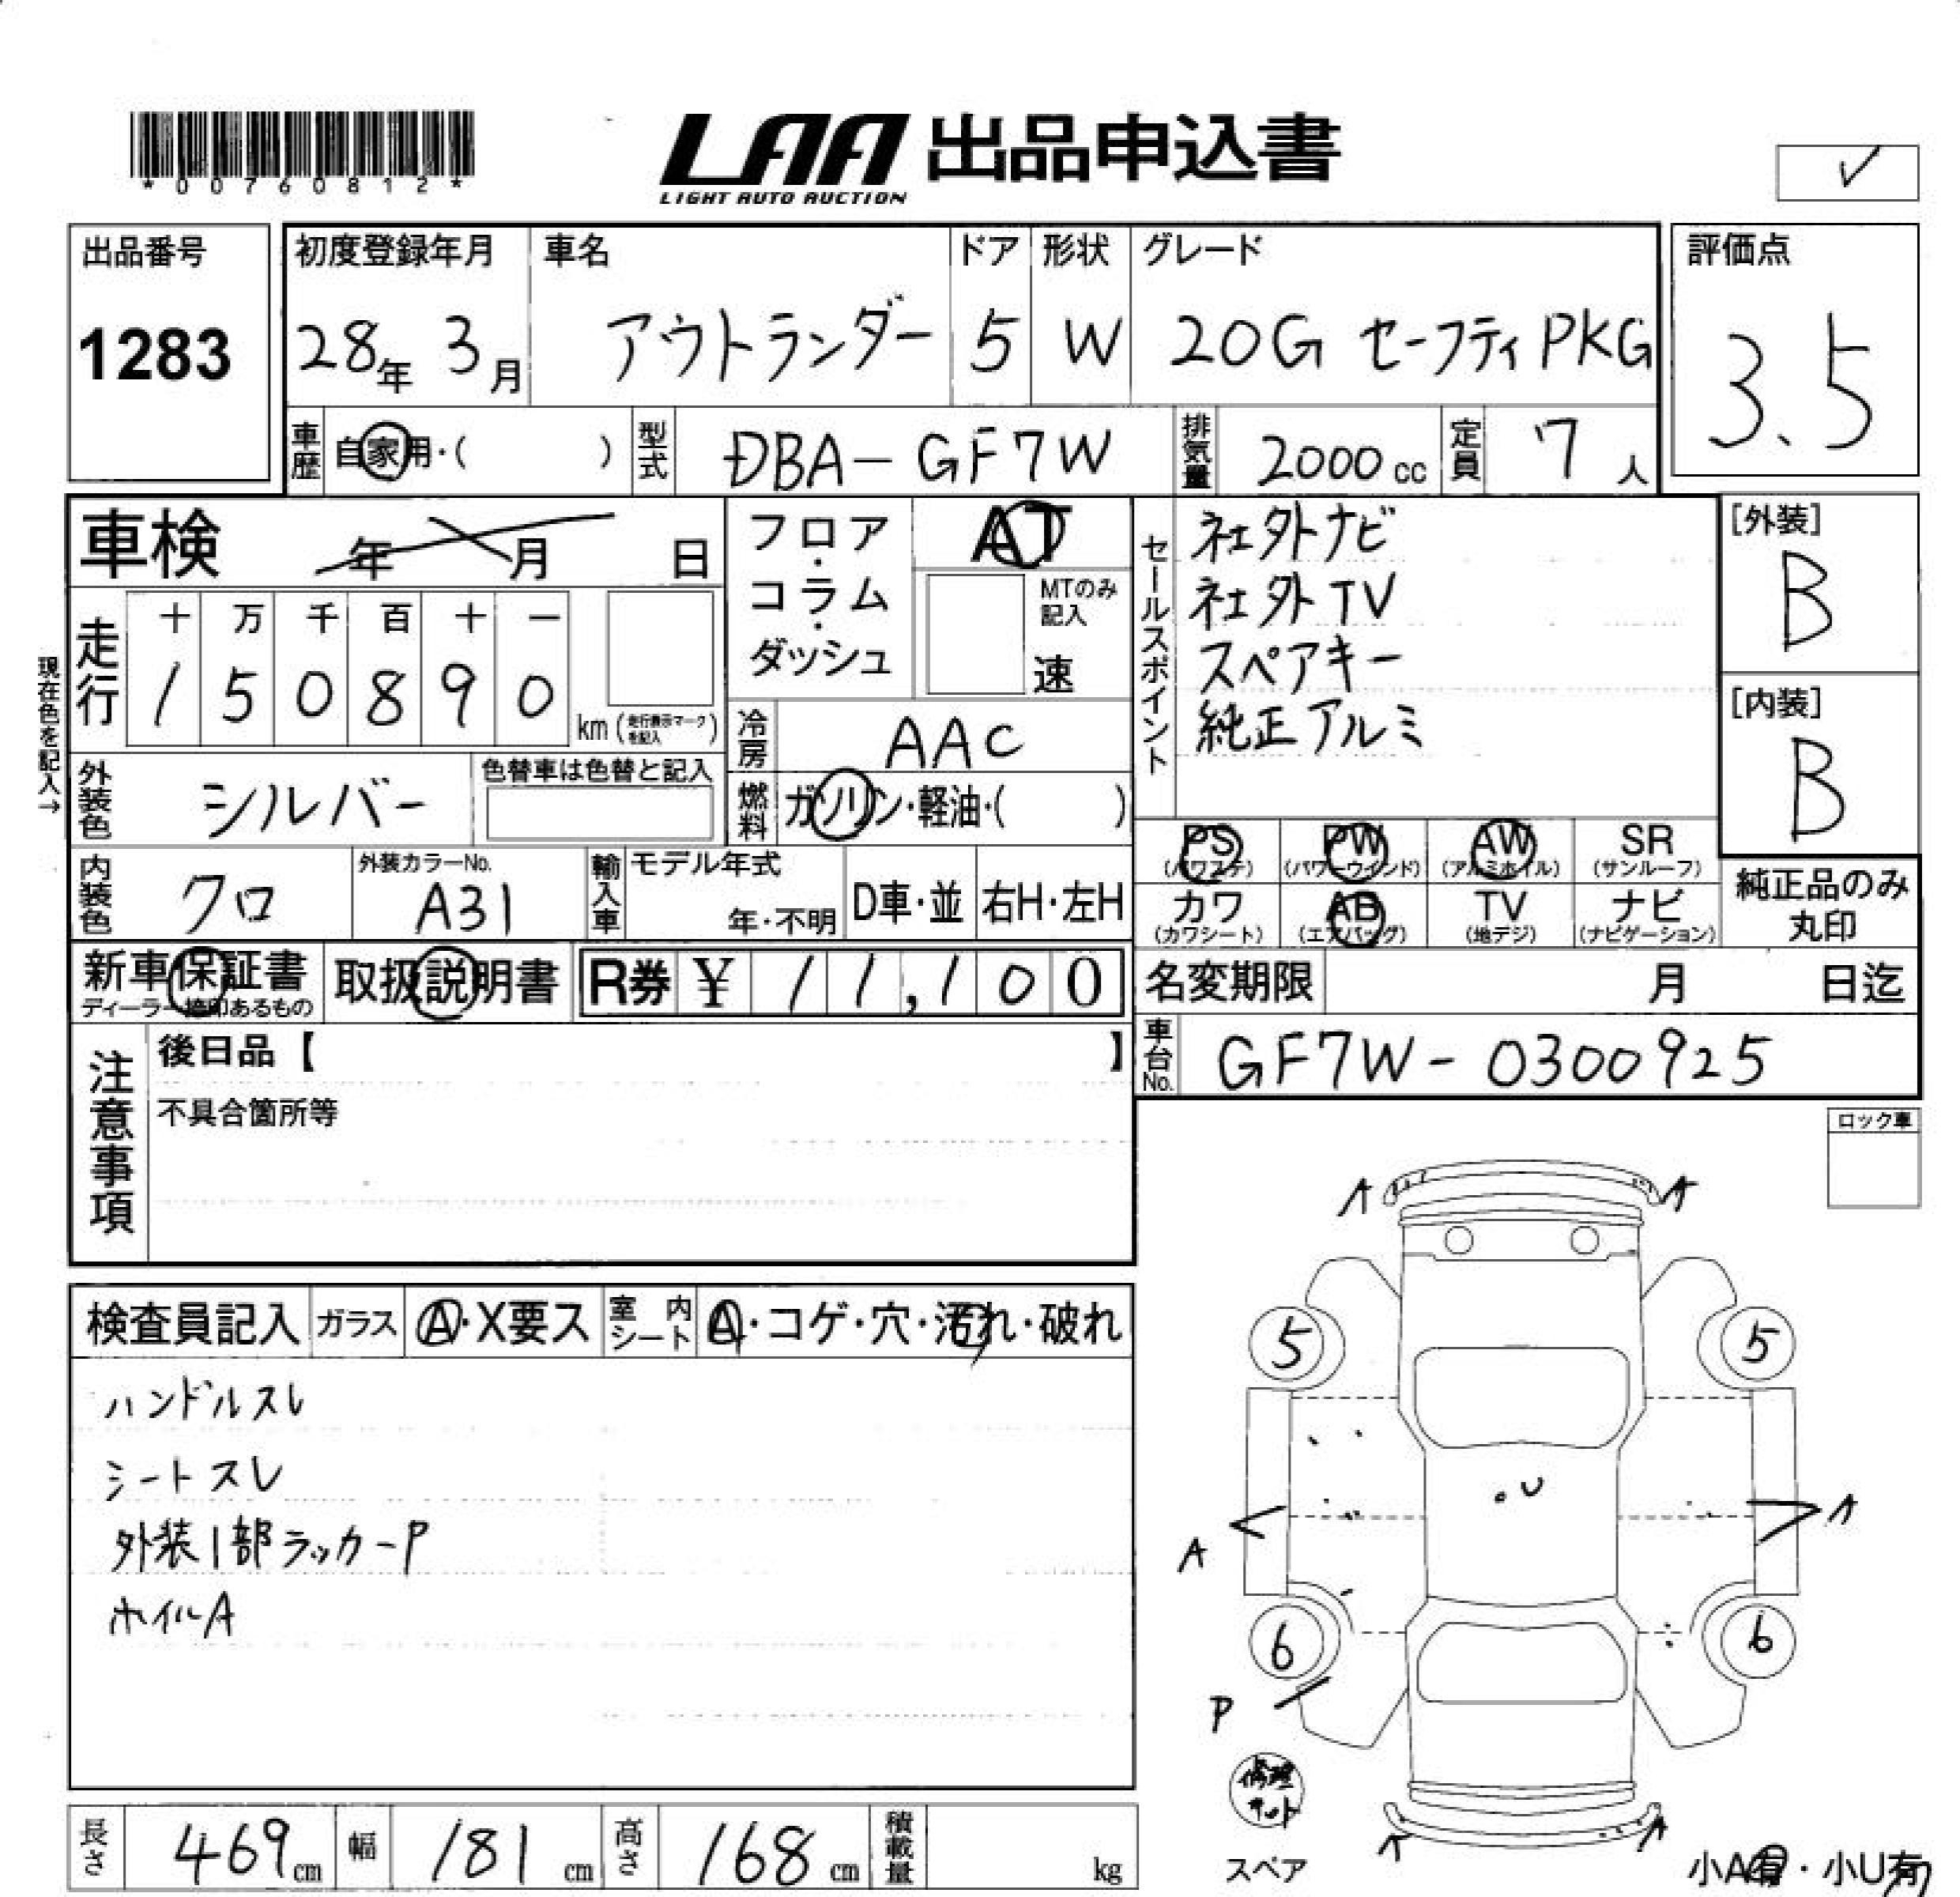 *00760812*
LAA 出品申込書
LIGHT AUTO AUCTION
✓
出品番号
1283
初度登録年月
28年 3月
車名
アウトランダー
ドア
5
形状
W
グレード
20G セーフティPKG
評価点
3.5
車歴
自家用・( )
型式
DBA-GF7W
排気量
2000 cc
定員
7 人
車検 年 月 日
フロア・コラム・ダッシュ
AT
MTのみ記入
速
セールスポイント
社外ナビ
社外TV
スペアキー
純正アルミ
[外装]
B
[内装]
B
現在色を記入→
走行
十 万 千 百 十 一
1 5 0 8 9 0
km (走行表示マークを記入)
冷房
AAC
外装色
シルバー
色替車は色替と記入
燃料
ガソリン・軽油・( )
PS
(パワステ)
PW
(パワーウインド)
AW
(アルミホイル)
SR
(サンルーフ)
カワ
(カワシート)
AB
(エアバッグ)
TV
(地デジ)
ナビ
(ナビゲーション)
純正品のみ
丸印
内装色
クロ
外装カラーNo.
A31
輸入車
モデル年式
年・不明
D車・並
右H・左H
新車保証書
ディーラー捺印あるもの
取扱説明書
R券 ¥ 11,100
名変期限 月 日迄
車台No.
GF7W-0300925
注意事項
後日品【 】
不具合箇所等
ロック車
検査員記入
ガラス
A・X要ス
室内シート
A・コゲ・穴・汚れ・破れ
ハンドルスレ
シートスレ
外装1部ラッカーP
ホイルA
A A
5 5
U
A A
6 6
P
修理キット
スペア
A A
小A有・小U有
長さ
469cm
幅
181 cm
高さ
168 cm
積載量
kg